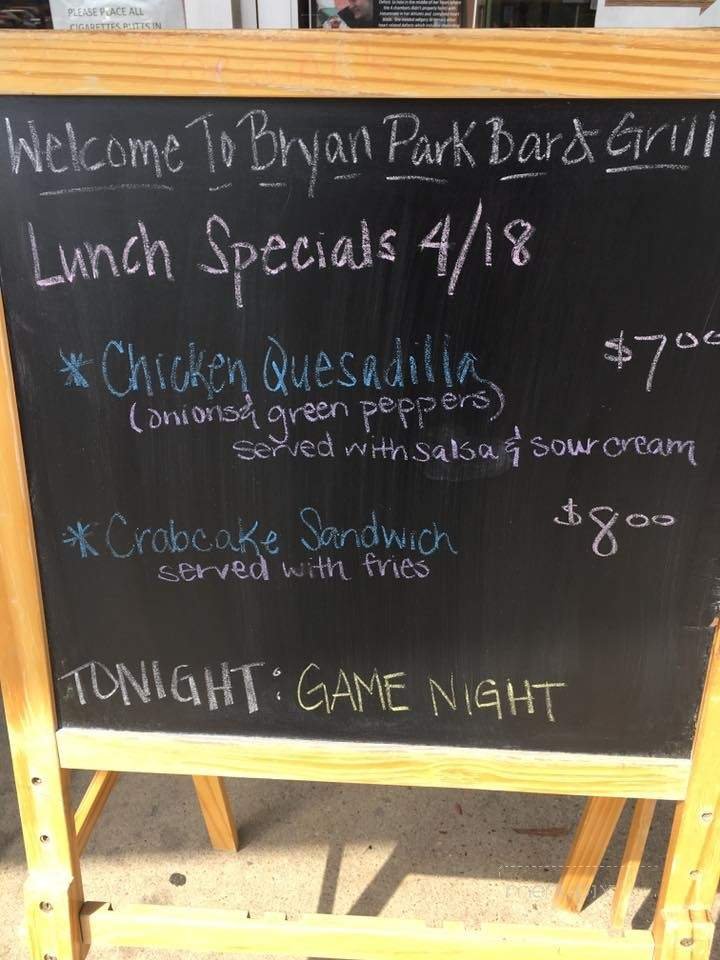 PLEASE PLACE ALL
CIGARETTES BUTTS IN
Welcome To Bryan Park Bar & Grill
Lunch Specials 4/18
* Chicken Quesadilla $7.00
(onions & green peppers)
served with salsa & sour cream
* Crabcake Sandwich $8.00
served with fries
TONIGHT: GAME NIGHT